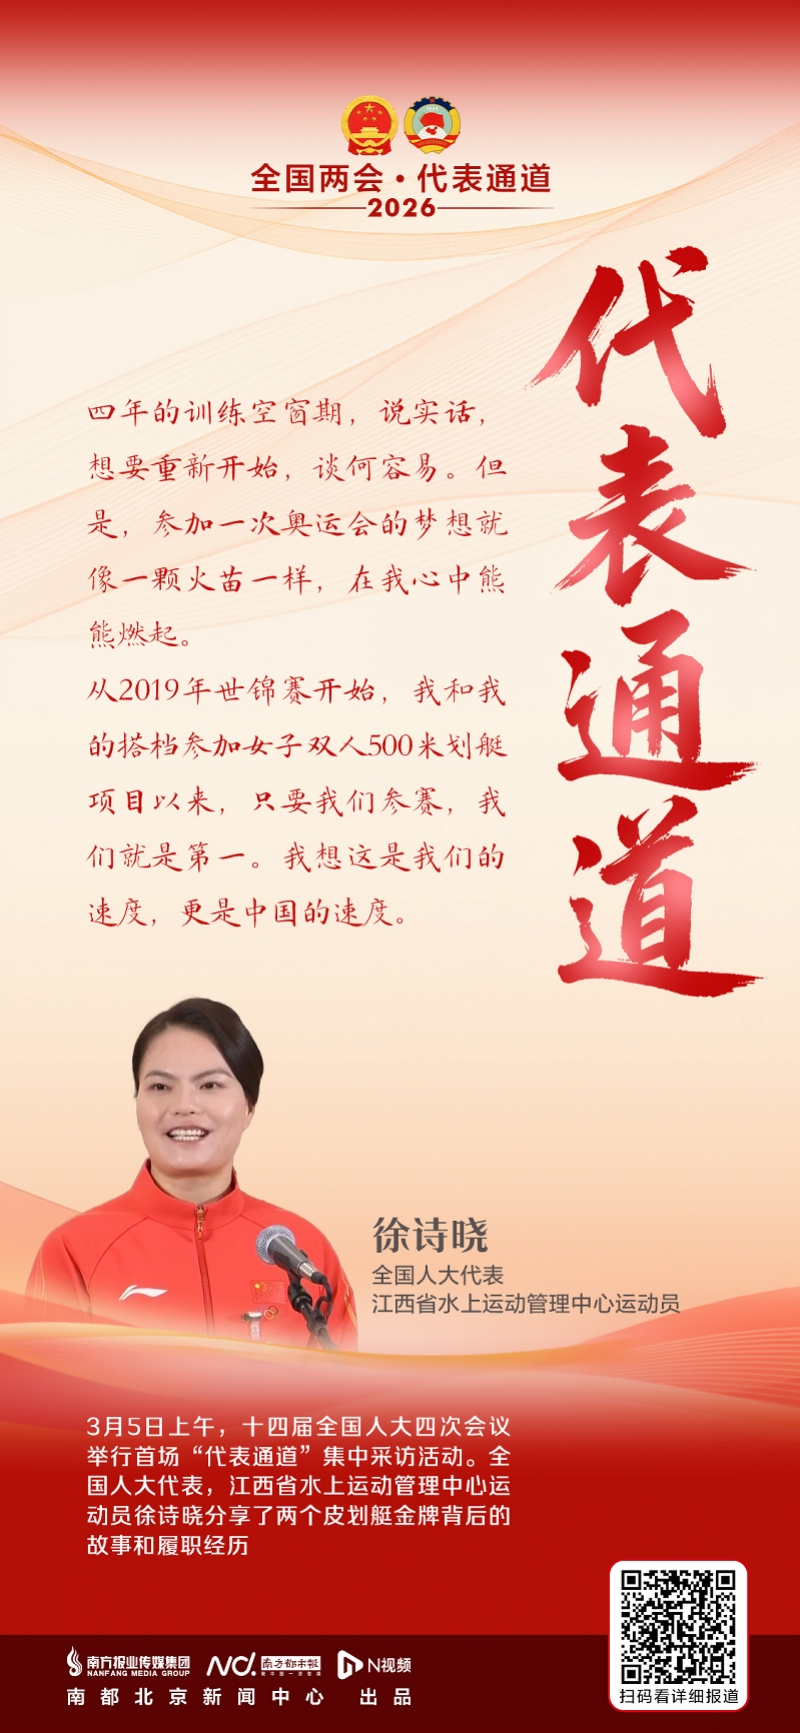 全国两会·代表通道
2026
代表通道
四年的训练空窗期，说实话，
想要重新开始，谈何容易。但
是，参加一次奥运会的梦想就
像一颗火苗一样，在我心中熊
熊燃起。
从2019年世锦赛开始，我和我
的搭档参加女子双人500米划艇
项目以来，只要我们参赛，我
们就是第一。我想这是我们的
速度，更是中国的速度。
徐诗晓
全国人大代表
江西省水上运动管理中心运动员
3月5日上午，十四届全国人大四次会议
举行首场“代表通道”集中采访活动。全
国人大代表，江西省水上运动管理中心运
动员徐诗晓分享了两个皮划艇金牌背后的
故事和履职经历
南方报业传媒集团
NANFANG MEDIA GROUP
南方都市报
N视频
南都北京新闻中心 出品
扫码看详细报道